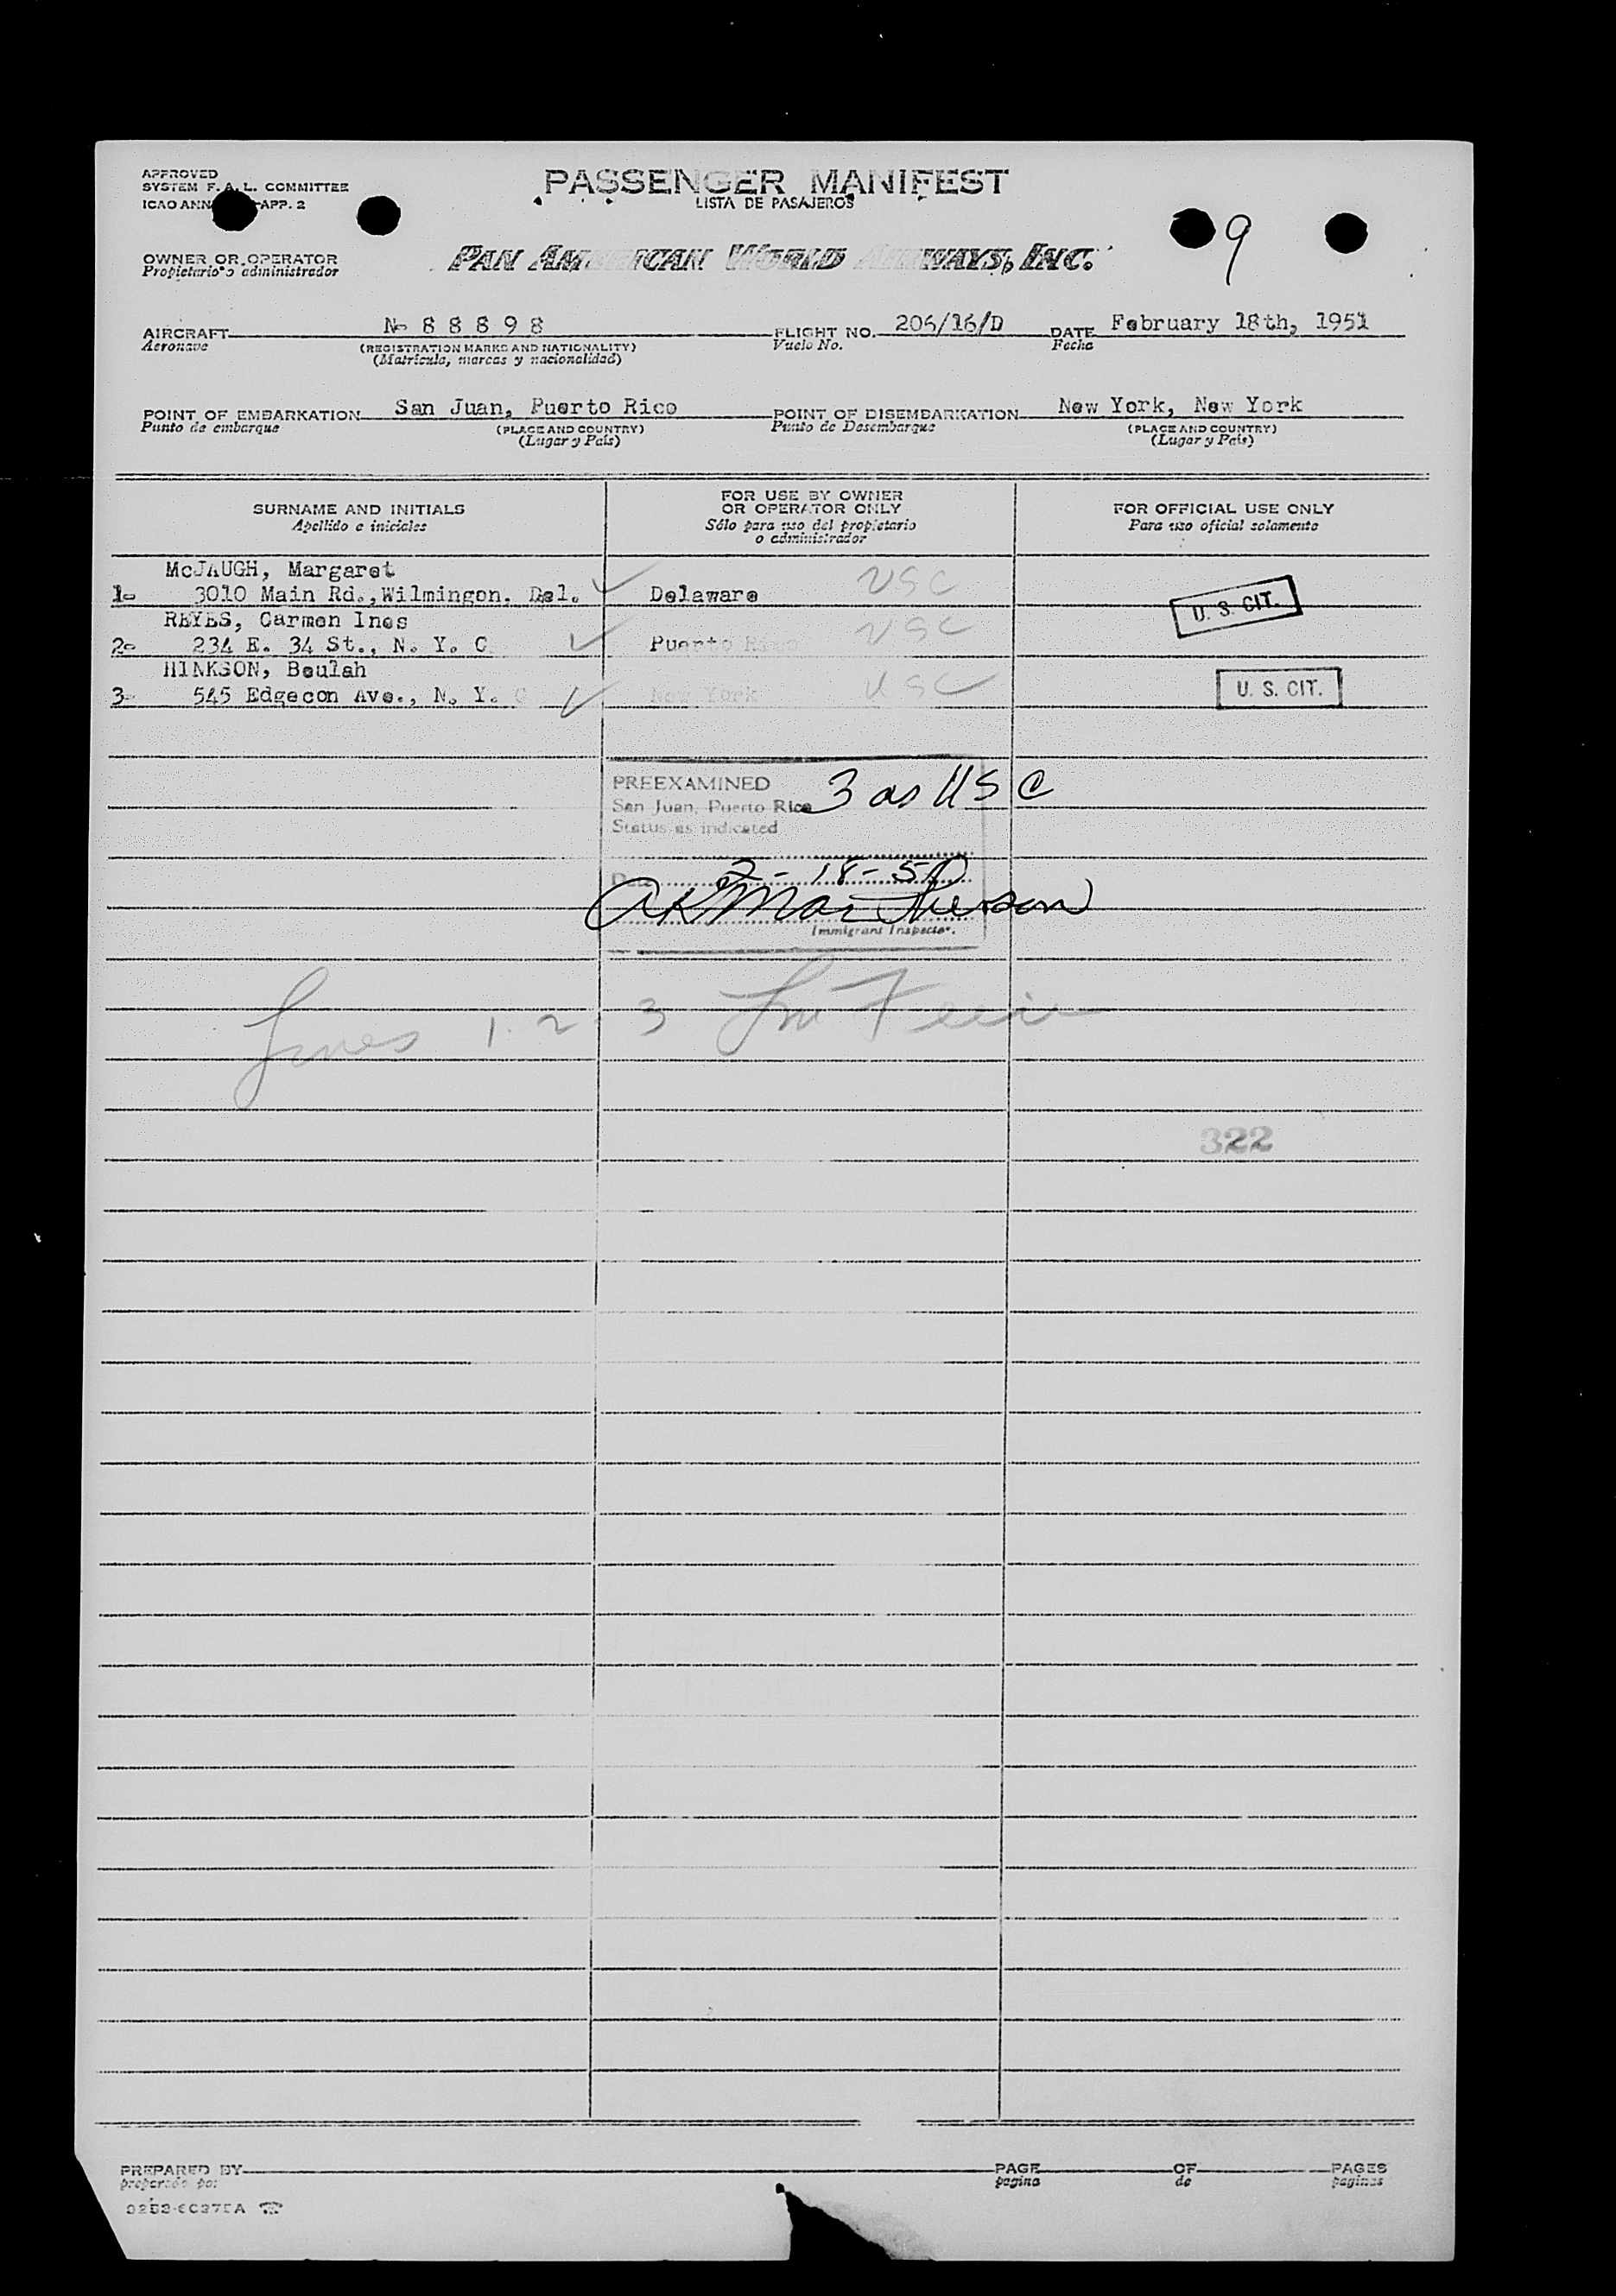 APPROVED
SYSTEM F. A. L. COMMITTEE
ICAO ANN APP. 2
PASSENGER MANIFEST
LISTA DE PASAJEROS
9
OWNER OR OPERATOR
Propietario o administrador
PAN AMERICAN WORLD AIRWAYS, INC.
AIRCRAFT N- 88898 FLIGHT NO. 206/16/D DATE February 18th, 1951
Aeronave (REGISTRATION MARKS AND NATIONALITY) Vuelo No. Fecha
(Matrícula, marcas y nacionalidad)
POINT OF EMBARKATION San Juan, Puerto Rico POINT OF DISEMBARKATION New York, New York
Punto de embarque (PLACE AND COUNTRY) Punto de Desembarque (PLACE AND COUNTRY)
(Lugar y País) (Lugar y País)
SURNAME AND INITIALS
Apellido e iniciales
FOR USE BY OWNER
OR OPERATOR ONLY
Sólo para uso del propietario
o administrador
FOR OFFICIAL USE ONLY
Para uso oficial solamente
McJAUGH, Margaret
1- 3010 Main Rd.,Wilmingon. Del. Delaware USC U. S. CIT.
REYES, Carmen Ines
2- 234 E. 34 St., N. Y. C Puerto Rico USC
HINKSON, Beulah
3- 545 Edgecon Ave., N. Y. C New York USC U. S. CIT.
PREEXAMINED 3 as USC
San Juan, Puerto Rico
Status as indicated
Date 2-18-51
Immigrant Inspector.
Lines 1. 2. 3
322
PREPARED BY PAGE OF PAGES
preparado por pagina de paginas